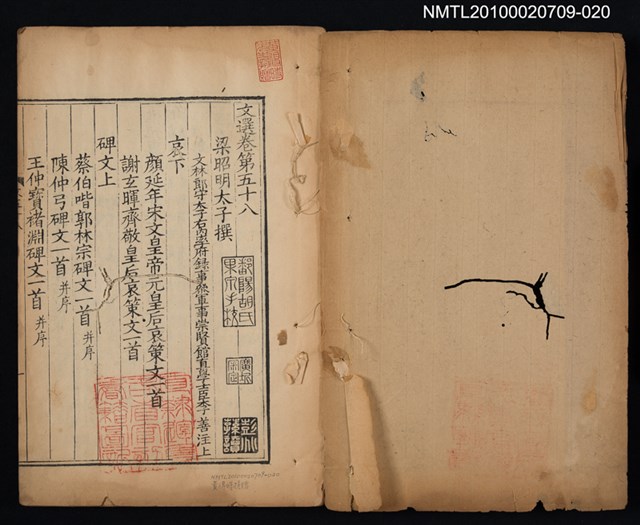 NMTL20100020709-020
文選卷第五十八
梁昭明太子撰
文林郎守太子右內率府錄事參軍事崇賢館直學士臣李善注上
哀下
顏延年宋文皇帝元皇后哀策文一首
謝玄暉齊敬皇后哀策文一首
碑文上
蔡伯喈郭林宗碑文一首 并序
陳仲弓碑文一首 并序
王仲寶褚淵碑文一首 并序
鄱陽胡氏
果泉手校